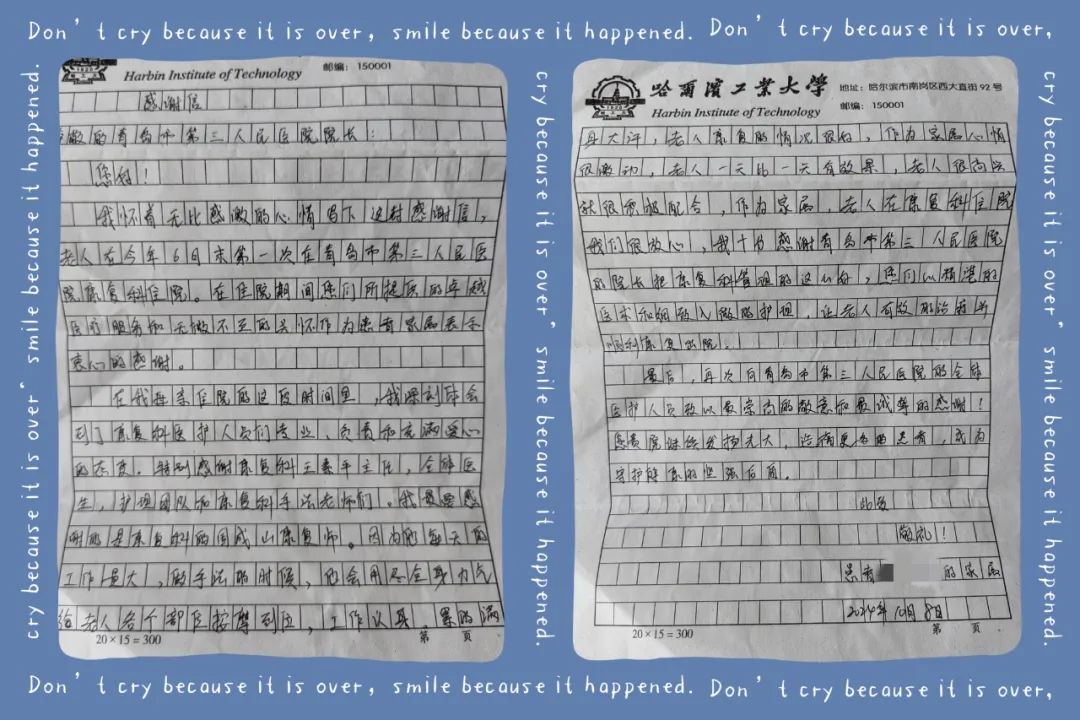 Don't cry because it is over, smile because it happened. Don't cry because it is over,
cry because it is over" smile because it happened.
Harbin Institute of Technology
邮编：150001
感谢信
敬的青岛市第三人民医院院长：
您好！
我怀着无比感激的心情写下这封感谢信，
老人在今年6月末第一次在青岛市第三人民医
院康复科住院。在住院期间您们所提供的卓越
医疗服务和无微不至的关怀作为患者家属表示
衷心的感谢。
在我母亲住院的这段时间里，我深刻体会
到了康复科医护人员们专业、负责和充满爱心
的态度。特别感谢康复科王素平主任，全体医
生，护理团队和康复科手法老师们。我最要感
谢的是康复科的国成山康复师。因为他每天的
工作量大，做手法的时候，他会用尽全身力气
给老人各个部位按摩到位，工作认真，累的满
20×15=300
第 页
cry because it is over" smile because it happened.
哈尔滨工业大学
地址：哈尔滨市南岗区西大直街92号
Harbin Institute of Technology
邮编：150001
大汗，老人康复的情况很好，作为家属心情
很激动，老人一天比一天有效果，老人很高兴
就很积极配合，作为家属，老人在康复科住院
我们很放心，我十分感谢青岛市第三人民医院
的院长把康复科管理的这么好，您们以精湛的
医术和细致入微的护理，让老人有效的治疗并
顺利康复出院。
最后，再次向青岛市第三人民医院的全体
医护人员致以最崇高的敬意和最诚挚的感谢！
愿贵院继续发扬光大，治病更多的患者，成为
守护健康的坚强后盾。
此致
敬礼！
患者 的家属
2024年10月8日
20×15=300
第 页
cry because it is over" smile because it happened.
Don't cry because it is over, smile because it happened. Don't cry because it is over,